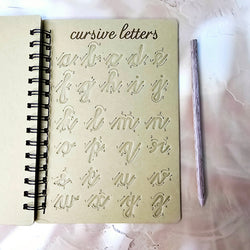 cursive letters
a b c d e
f g h i j
k l m n
o p q r
s t u v
w x y z